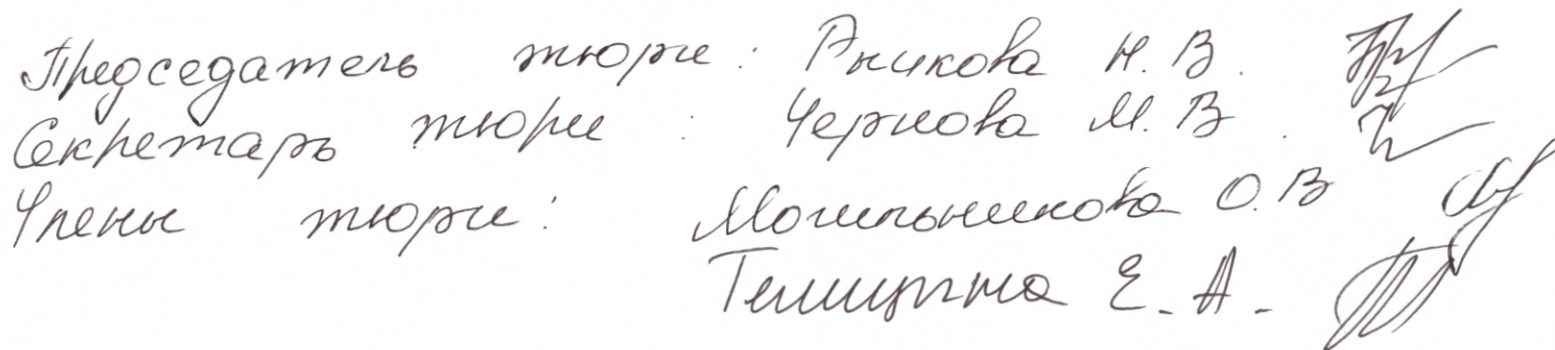 Председатель жюри: Рникова Н. В.
Секретарь жюри: Чернова М. В.
Члены жюри: Могильникова О. В
Телицына Е. А.